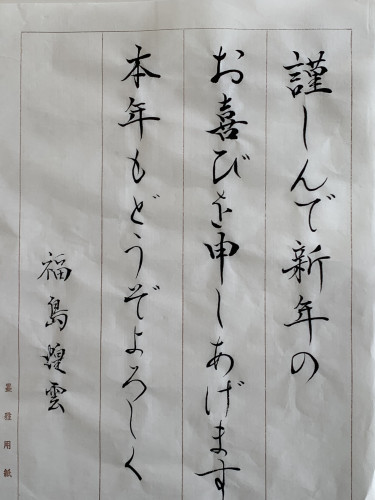 謹しんで新年の
お喜びを申しあげます
本年もどうぞよろしく
福島煌雲
用紙